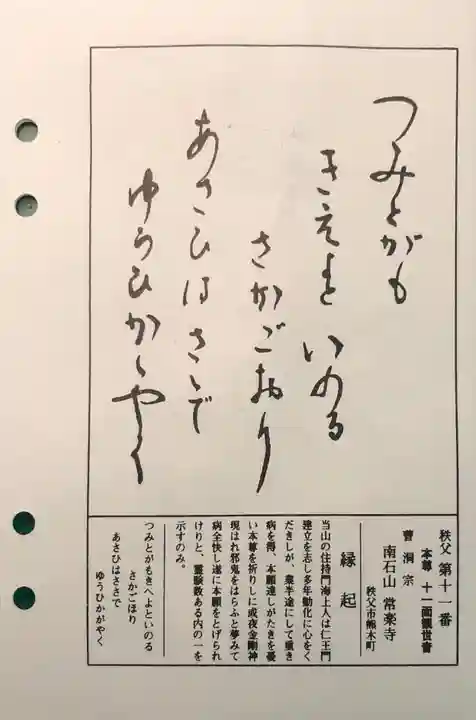 つみとがも
きえよと いのる
さかごおり
あさひはさゝで
ゆうひかゝやく
秩父 第十一番
本尊 十一面観世音
曹洞宗
南石山 常楽寺
秩父市熊木町
縁起
当山の住持門海上人は仁王門
建立を志し多年勧化に心をく
だきしが、業半途にして重き
病を得、本願達しがたきを憂
い本尊を祈りしに或夜金剛神
現はれ邪鬼をはらふと夢みて
病全快し遂に本願をとげられ
けりと、霊験数ある内の一を
示すのみ。
つみとがもきへよといのる
さかごほり
あさひはささで
ゆうひかがやく